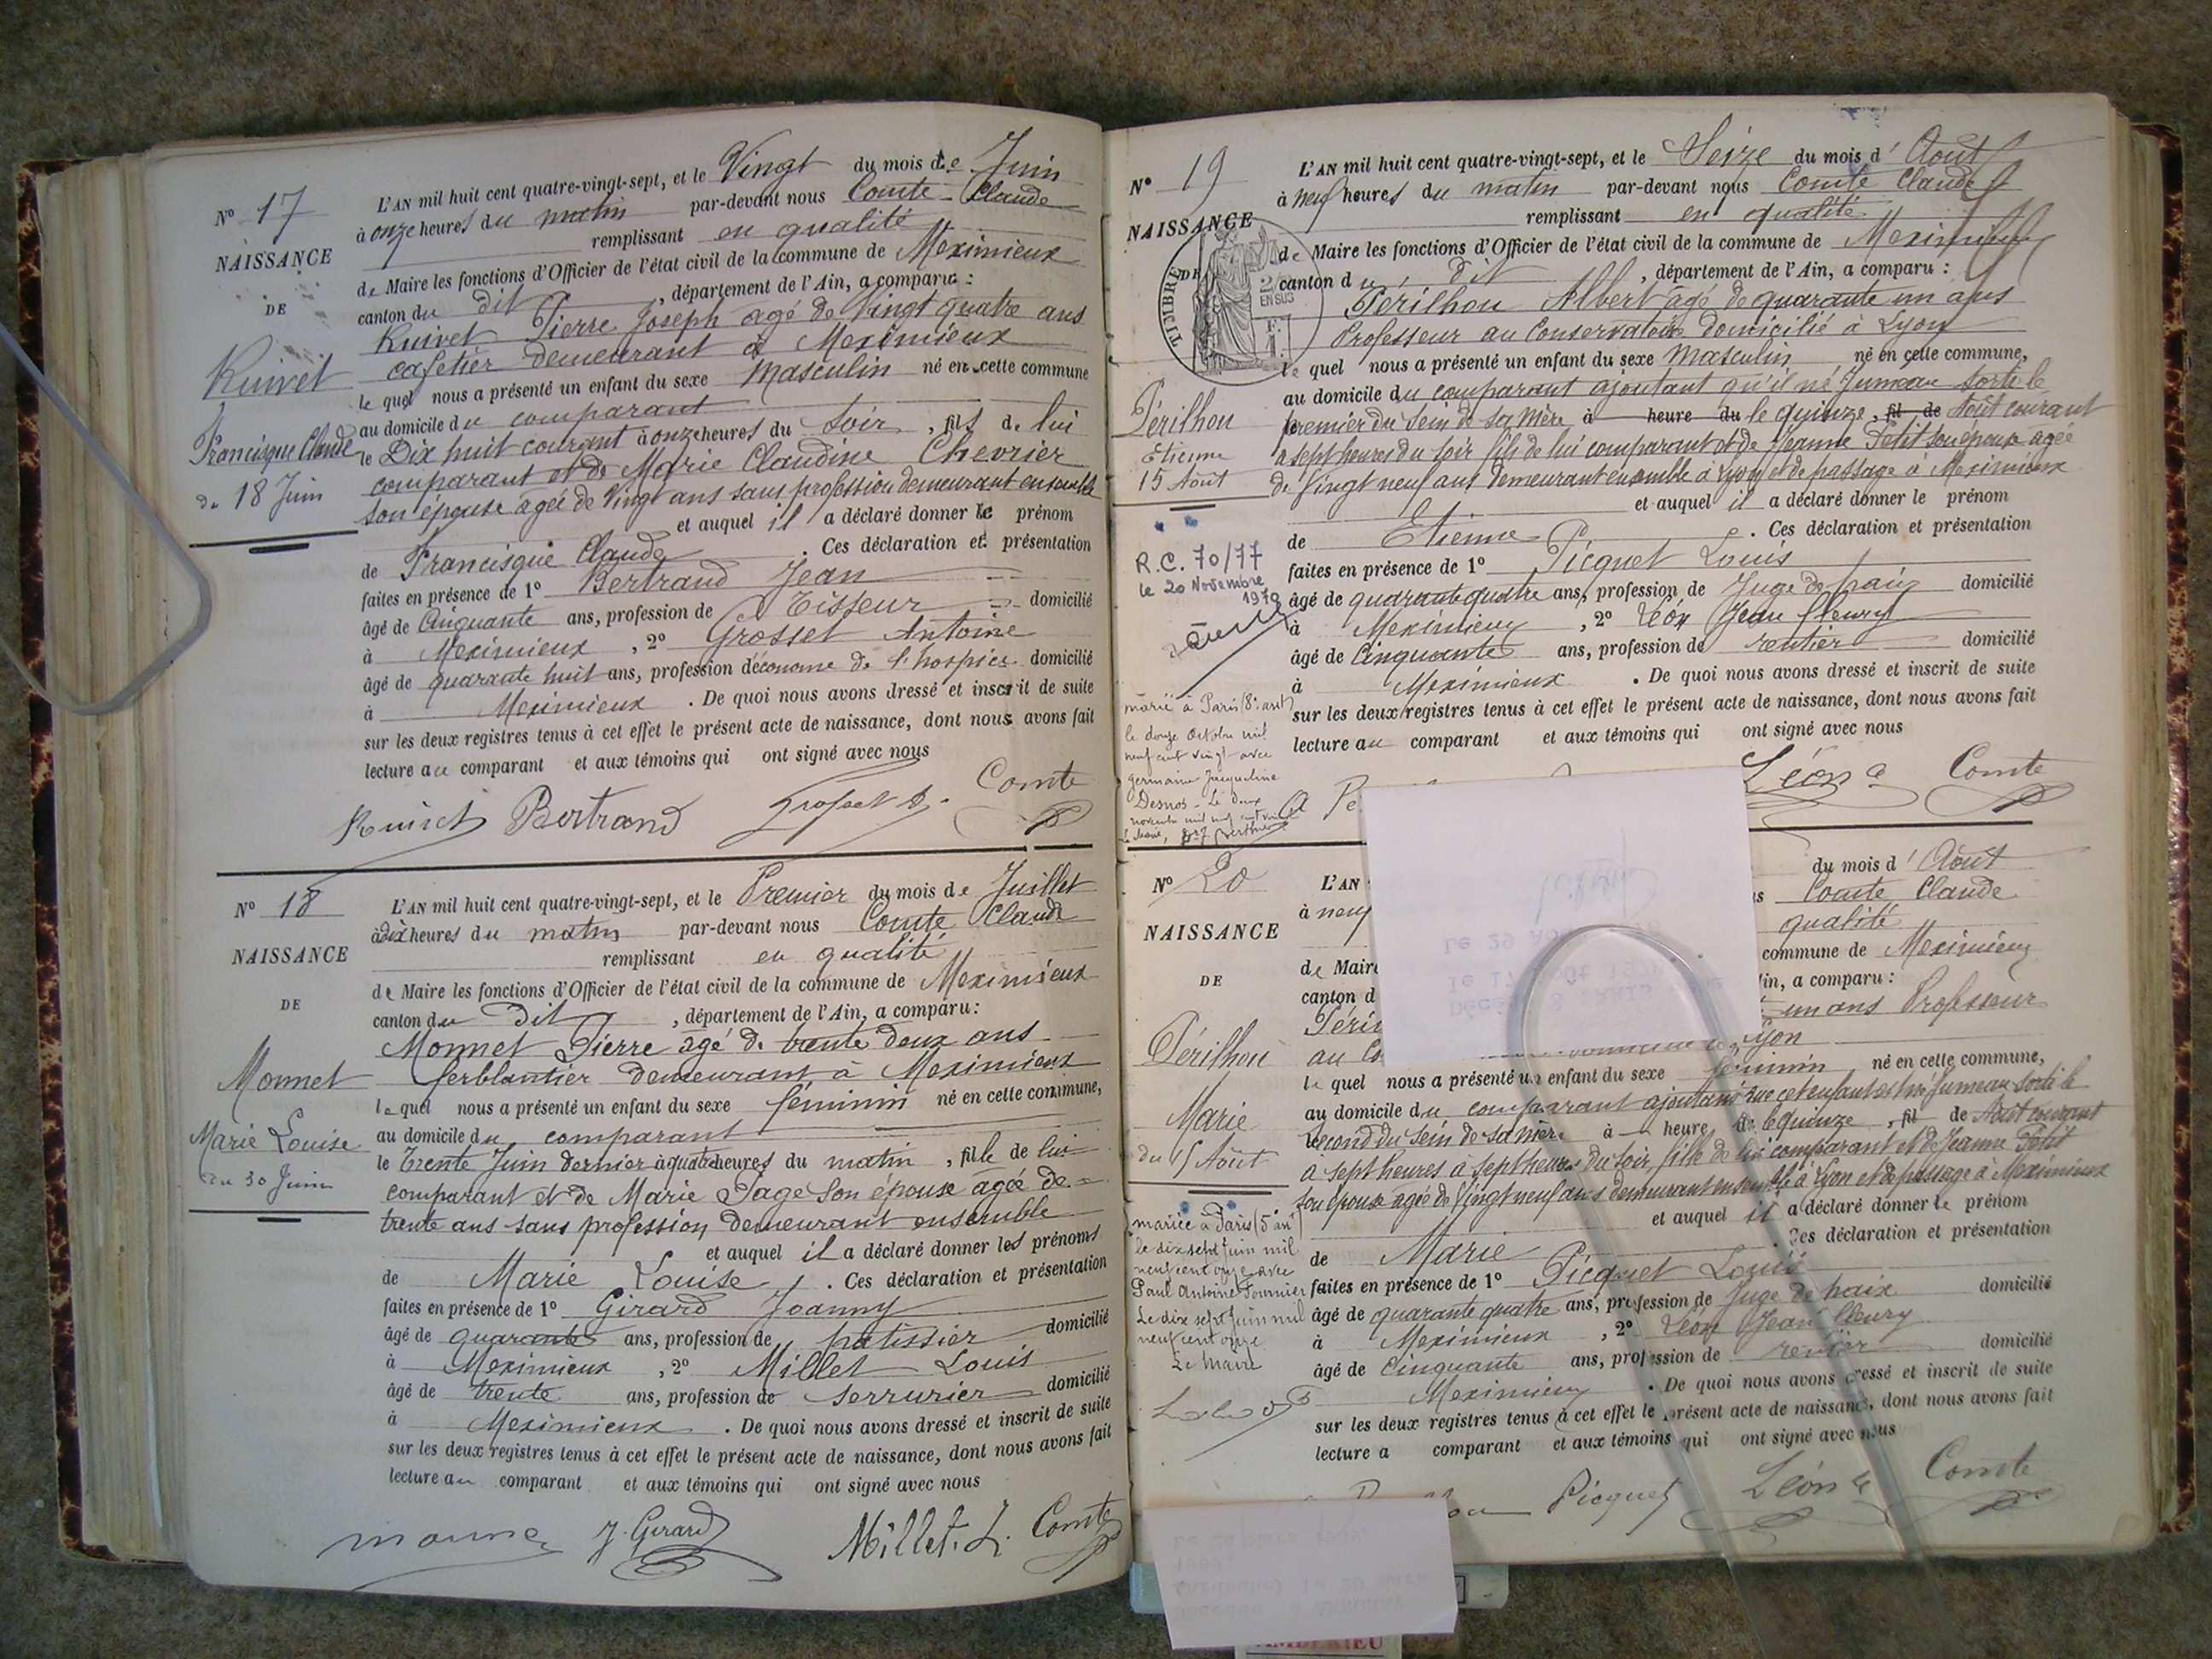 N° 17
NAISSANCE
DE
Ruivet
Francisque Claude
du 18 Juin
L'AN mil huit cent quatre-vingt-sept, et le Vingt du mois de Juin
à onze heures du matin par-devant nous Comte Claude
remplissant en qualité
de Maire les fonctions d'Officier de l'état civil de la commune de Meximieux
canton du dit, département de l'Ain, a comparu :
Ruivet Pierre Joseph agé de Vingt quatre ans
cafetier demeurant à Meximieux
le quel nous a présenté un enfant du sexe Masculin né en cette commune
au domicile du comparant
le Dix huit courant à onze heures du Soir, fils de lui
comparant et de Marie Claudine Chevrier
son épouse agée de Vingt ans sans profession demeurant ensemble
et auquel il a déclaré donner le prénom
de Francisque Claude. Ces déclaration et présentation
faites en présence de 1° Bertrand Jean
âgé de Cinquante ans, profession de Tisseur domicilié
à Meximieux, 2° Grosset Antoine
âgé de quarante huit ans, profession d'économe de l'hospice domicilié
à Meximieux. De quoi nous avons dressé et inscrit de suite
sur les deux registres tenus à cet effet le présent acte de naissance, dont nous avons fait
lecture au comparant et aux témoins qui ont signé avec nous
Ruivet Bertrand Grosset A. Comte
N° 18
NAISSANCE
DE
Monnet
Marie Louise
du 30 Juin
L'AN mil huit cent quatre-vingt-sept, et le Premier du mois de Juillet
à dix heures du matin par-devant nous Comte Claude
remplissant en qualité
de Maire les fonctions d'Officier de l'état civil de la commune de Meximieux
canton du Dit, département de l'Ain, a comparu :
Monnet Pierre agé de trente deux ans
ferblantier demeurant à Meximieux
le quel nous a présenté un enfant du sexe féminin né en cette commune,
au domicile du comparant
le trente Juin dernier à quatre heures du matin, fille de lui
comparant et de Marie Sage son épouse agée de
trente ans sans profession demeurant ensemble
et auquel il a déclaré donner les prénoms
de Marie Louise. Ces déclaration et présentation
faites en présence de 1° Girard Joanny
âgé de quarante ans, profession de patissier domicilié
à Meximieux, 2° Millet Louis
âgé de trente ans, profession de serrurier domicilié
à Meximieux. De quoi nous avons dressé et inscrit de suite
sur les deux registres tenus à cet effet le présent acte de naissance, dont nous avons fait
lecture au comparant et aux témoins qui ont signé avec nous
Monnet J. Girard Millet. L. Comte
N° 19
NAISSANCE
DE
TIMBRE
2/10
EN SUS
Périlhou
Etienne
15 Août
R.C. 70/77
le 20 Novembre
1979
marié à Paris (8e arrt)
le douze Octobre mil
neuf cent vingt avec
Germaine Jacqueline
Desnos - Le deux
novembre mil neuf cent vingt
Le Maire,
L'AN mil huit cent quatre-vingt-sept, et le Seize du mois d'Août
à neuf heures du matin par-devant nous Comte Claude
remplissant en qualité
de Maire les fonctions d'Officier de l'état civil de la commune de Meximieux
canton du dit, département de l'Ain, a comparu :
Périlhou Albert âgé de quarante un ans
Professeur au Conservatoire domicilié à Lyon
le quel nous a présenté un enfant du sexe Masculin né en cette commune,
au domicile du comparant ajoutant qu'il né Jumeau sorti le
premier du sein de sa mère à heure du le quinze, fil de Août courant
à sept heures du soir fils de lui comparant et de Jeanne Petit son épouse agée
de Vingt neuf ans demeurant ensemble à Lyon et de passage à Meximieux
et auquel il a déclaré donner le prénom
de Etienne. Ces déclaration et présentation
faites en présence de 1° Picquet Louis
âgé de quarante quatre ans, profession de Juge de paix domicilié
à Meximieux, 2° Léon Jean fleury
âgé de Cinquante ans, profession de rentier domicilié
à Meximieux. De quoi nous avons dressé et inscrit de suite
sur les deux registres tenus à cet effet le présent acte de naissance, dont nous avons fait
lecture au comparant et aux témoins qui ont signé avec nous
A Pe Léon Comte
N° 20
NAISSANCE
DE
Périlhou
Marie
du 15 Août
mariée à Paris (5e arrt)
le dix sept Juin mil
neuf cent onze avec
Paul Antoine Fournier
Le dix sept Juin mil
neuf cent onze
Le Maire
L'AN du mois d'Août
à neuf Comte Claude
qualité
de Maire commune de Meximieux
canton d in, a comparu :
Péri un ans Professeur
au Co Lyon
le quel nous a présenté un enfant du sexe féminin né en cette commune,
au domicile du comparant ajoutant que cet enfant est né jumeau sorti le
second du sein de sa mère à heure du le quinze, fil de Août courant
à sept heures à sept heures du soir fille de lui comparant et de Jeanne Petit
son épouse agée de Vingt neuf ans demeurant ensemble à Lyon et de passage à Meximieux
et auquel il a déclaré donner le prénom
de Marie. Ces déclaration et présentation
faites en présence de 1° Picquet Louis
âgé de quarante quatre ans, profession de Juge de paix domicilié
à Meximieux, 2° Léon Jean fleury
âgé de Cinquante ans, profession de rentier domicilié
Meximieux. De quoi nous avons dressé et inscrit de suite
sur les deux registres tenus à cet effet le présent acte de naissance, dont nous avons fait
lecture a comparant et aux témoins qui ont signé avec nous
Picquet Léon Comte